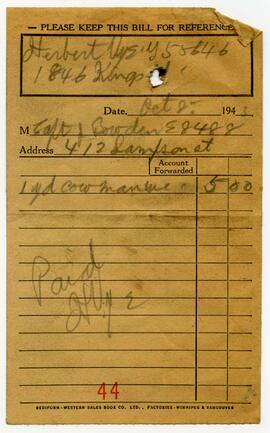 — PLEASE KEEP THIS BILL FOR REFERENCE
Herbert Nye Y55646
1846 Kings
Date Oct 8 194
M Capt J Bowden E8488
Address 412 Lampson st
Account
Forwarded
1 yd cow manure 5 00
Paid
H Nye
44
REDIFORM-WESTERN SALES BOOK CO. LTD., FACTORIES-WINNIPEG & VANCOUVER